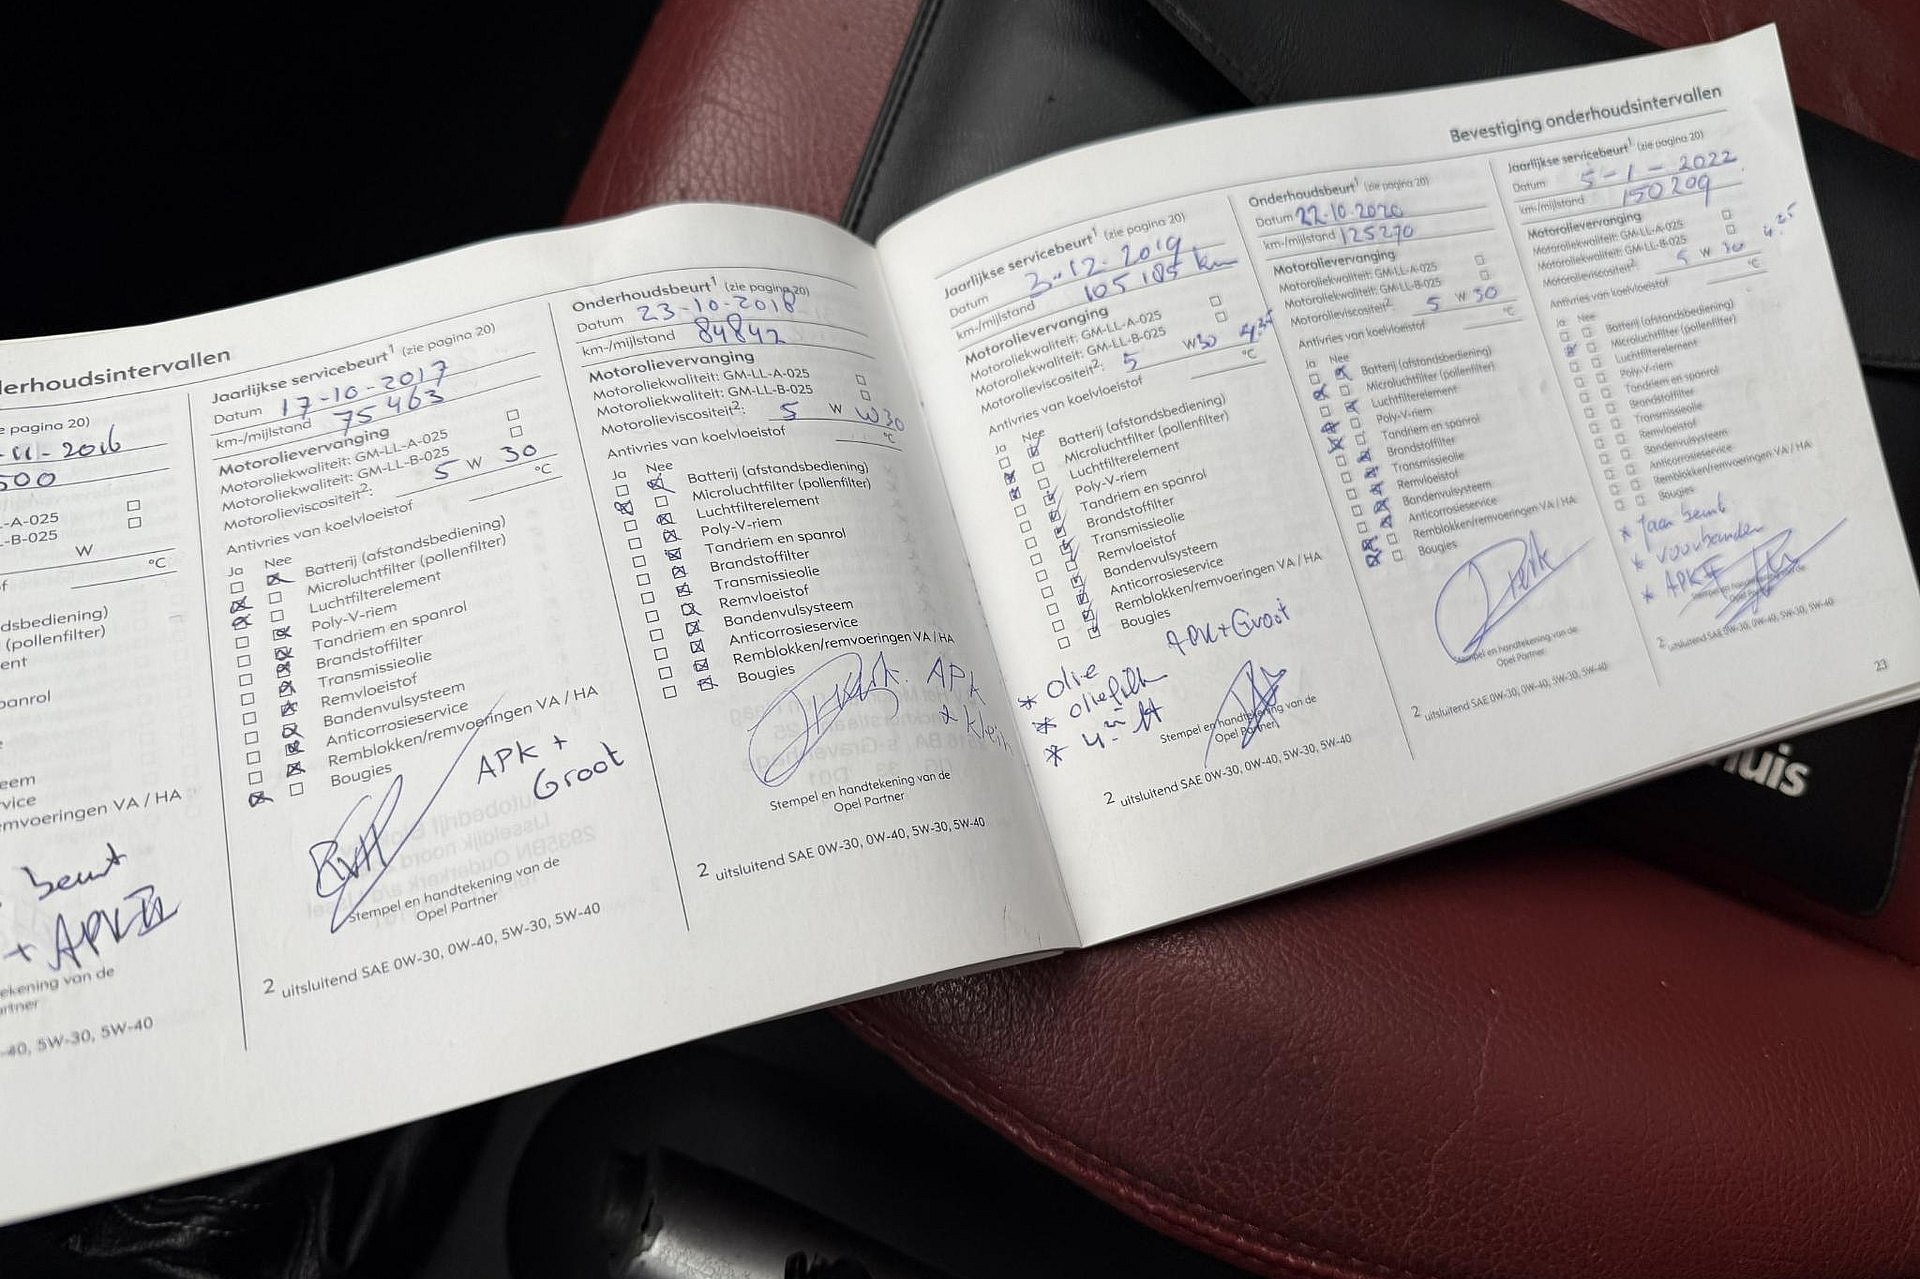 derhoudsintervallen
e pagina 20)
-11-2016
500
-A-025
-B-025
W
°C
dsbediening)
(pollenfilter)
ent
panrol
eem
vice
mvoeringen VA / HA
beurt
+ APK
ekening van de
artner
-40, 5W-30, 5W-40
Jaarlijkse servicebeurt¹ (zie pagina 20)
Datum 17-10-2017
km-/mijlstand 75463
Motorolievervanging
Motoroliekwaliteit: GM-LL-A-025
Motoroliekwaliteit: GM-LL-B-025
Motorolieviscositeit²: 5 W 30
Antivries van koelvloeistof °C
Ja Nee
Batterij (afstandsbediening)
Microluchtfilter (pollenfilter)
Luchtfilterelement
Poly-V-riem
Tandriem en spanrol
Brandstoffilter
Transmissieolie
Remvloeistof
Bandenvulsysteem
Anticorrosieservice
Remblokken/remvoeringen VA / HA
Bougies
APK +
Groot
RvH
Stempel en handtekening van de
Opel Partner
2 uitsluitend SAE 0W-30, 0W-40, 5W-30, 5W-40
Onderhoudsbeurt¹ (zie pagina 20)
Datum 23-10-2018
km-/mijlstand 84842
Motorolievervanging
Motoroliekwaliteit: GM-LL-A-025
Motoroliekwaliteit: GM-LL-B-025
Motorolieviscositeit²: 5 W W30
Antivries van koelvloeistof °C
Ja Nee
Batterij (afstandsbediening)
Microluchtfilter (pollenfilter)
Luchtfilterelement
Poly-V-riem
Tandriem en spanrol
Brandstoffilter
Transmissieolie
Remvloeistof
Bandenvulsysteem
Anticorrosieservice
Remblokken/remvoeringen VA / HA
Bougies
APK
+ klein
Stempel en handtekening van de
Opel Partner
2 uitsluitend SAE 0W-30, 0W-40, 5W-30, 5W-40
Bevestiging onderhoudsintervallen
Jaarlijkse servicebeurt¹ (zie pagina 20)
Datum 3-12-2019
km-/mijlstand 105185 km
Motorolievervanging
Motoroliekwaliteit: GM-LL-A-025
Motoroliekwaliteit: GM-LL-B-025
Motorolieviscositeit²: 5 W30
Antivries van koelvloeistof °C
Ja Nee
Batterij (afstandsbediening)
Microluchtfilter (pollenfilter)
Luchtfilterelement
Poly-V-riem
Tandriem en spanrol
Brandstoffilter
Transmissieolie
Remvloeistof
Bandenvulsysteem
Anticorrosieservice
Remblokken/remvoeringen VA / HA
Bougies
APK+Groot
* olie
* oliefilt
Stempel en handtekening van de
Opel Partner
2 uitsluitend SAE 0W-30, 0W-40, 5W-30, 5W-40
Onderhoudsbeurt¹ (zie pagina 20)
Datum 22-10-2020
km-/mijlstand 125270
Motorolievervanging
Motoroliekwaliteit: GM-LL-A-025
Motoroliekwaliteit: GM-LL-B-025
Motorolieviscositeit²: 5 W 30
Antivries van koelvloeistof °C
Ja Nee
Batterij (afstandsbediening)
Microluchtfilter (pollenfilter)
Luchtfilterelement
Poly-V-riem
Tandriem en spanrol
Brandstoffilter
Transmissieolie
Remvloeistof
Bandenvulsysteem
Anticorrosieservice
Remblokken/remvoeringen VA / HA
Bougies
Stempel en handtekening van de
Opel Partner
2 uitsluitend SAE 0W-30, 0W-40, 5W-30, 5W-40
Jaarlijkse servicebeurt¹ (zie pagina 20)
Datum 5-1-2022
km-/mijlstand 150209
Motorolievervanging
Motoroliekwaliteit: GM-LL-A-025
Motoroliekwaliteit: GM-LL-B-025
Motorolieviscositeit²: 5 W 30 4.25
Antivries van koelvloeistof °C
Ja Nee
Batterij (afstandsbediening)
Microluchtfilter (pollenfilter)
Luchtfilterelement
Poly-V-riem
Tandriem en spanrol
Brandstoffilter
Transmissieolie
Remvloeistof
Bandenvulsysteem
Anticorrosieservice
Remblokken/remvoeringen VA / HA
Bougies
* Jaar beurt
* voorbanden
* APK
Opel Partner
2 uitsluitend SAE 0W-30, 0W-40, 5W-30, 5W-40
23
huis